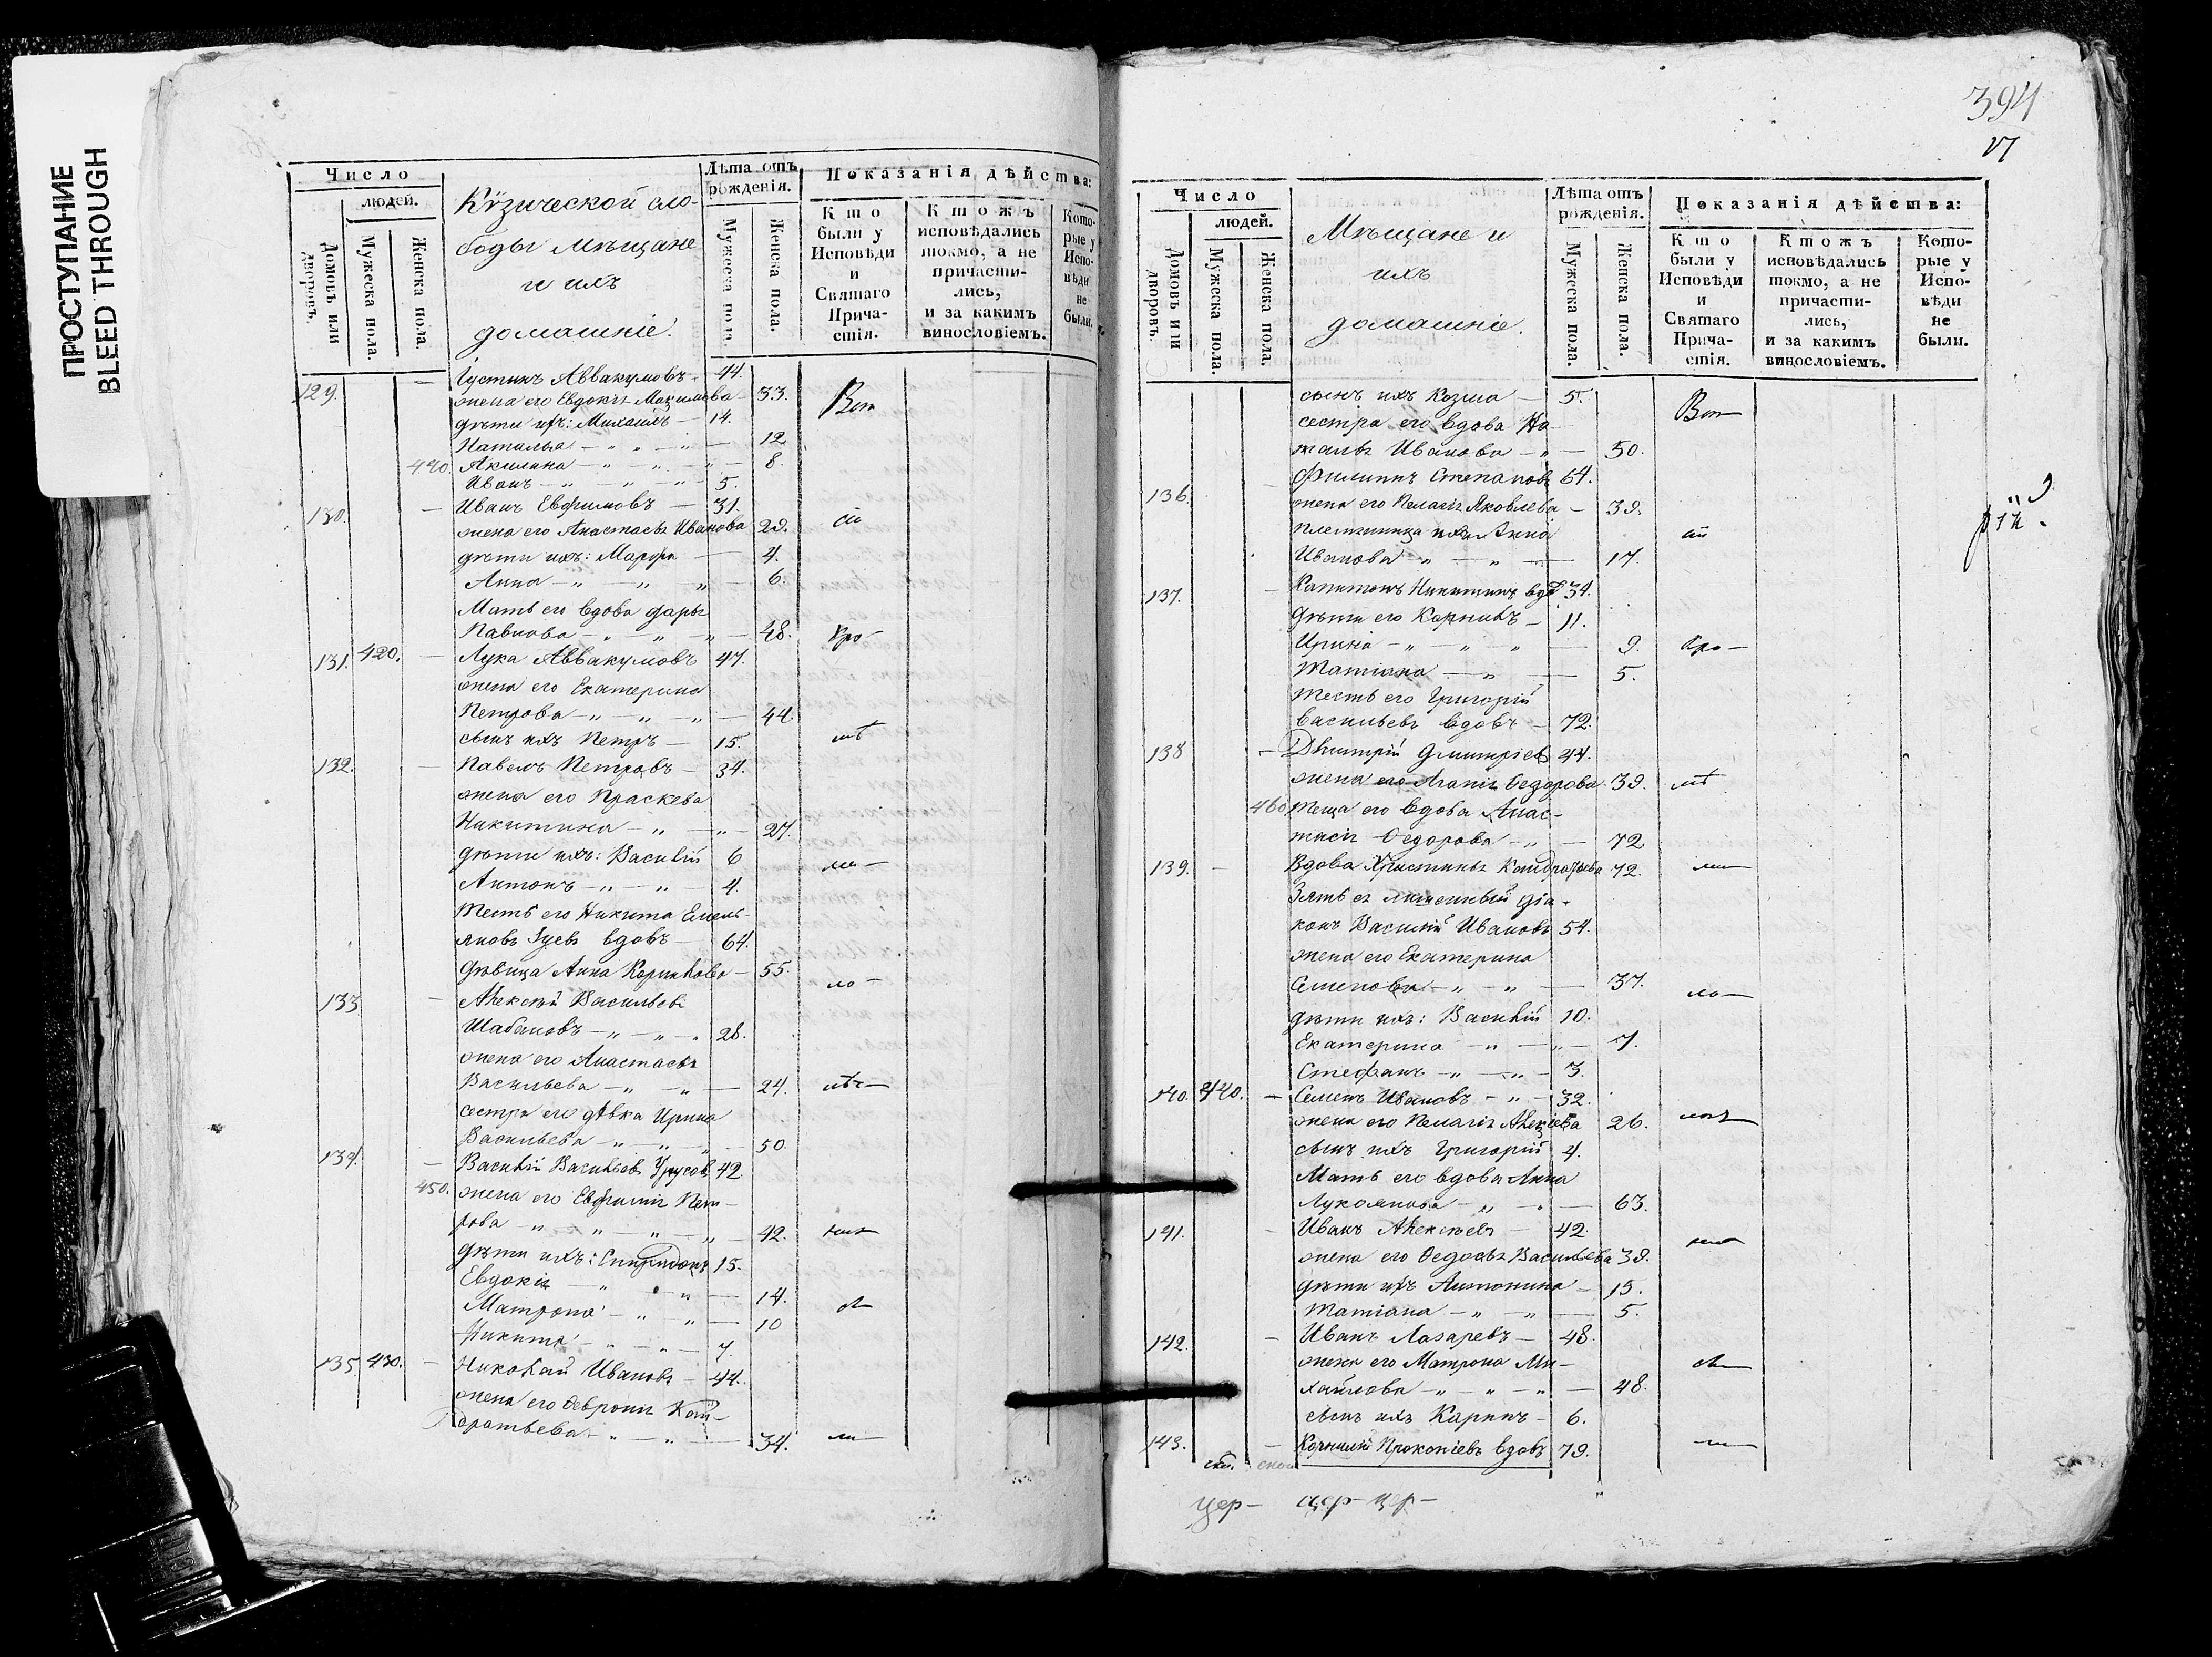 ПРОСТУПАНИЕ
BLEED THROUGH
Число
людей.
Домовъ или дворовъ.
Мужеска пола.
Женска пола.
Кузической сло-
боды мѣщане
и ихъ
домашніе.
Лѣта отъ рожденія.
Мужеска пола
Женска пола.
Показанія дѣйства:
Кто были у Исповѣди и Святаго Прича-стія.
Ктожъ исповѣдались токмо, а не причасти-лись, и за какимъ винословіемъ.
Кото-рые у Испо-вѣди не были.
129. Іустинъ Аввакумовъ 44.
жена его Евдокія Максимова 33.
дѣти ихъ: Михаилъ 14.
Наталья 12
Акилина 8.
Иванъ 5.
130. Иванъ Евфимовъ 31.
жена его Анастасья Иванова 29.
дѣти ихъ: Марфа 4.
Анна 6.
Мать его вдова Дарья
Павлова 48.
131. 420. Лука Аввакумовъ 47.
жена его Екатерина
Петрова 44.
сынъ ихъ Петръ 15.
132. Павелъ Петровъ 34.
жена его Праскева
Никитина 27.
дѣти ихъ: Василій 6
Антонъ 4.
Тесть его Никита Емель-
яновъ Зуевъ вдовъ 64.
дѣвица Анна 55.
133 Алексѣй Васильевъ
Шабановъ 28.
жена его Анастасья
Васильева 24.
сестра его дѣвка Ирина
Васильева 50.
134. Василій Васильевъ Урусовъ 42
450. жена его Евфимія Пет-
рова 42.
дѣти ихъ: Спиридонъ 15.
Евдокія 14.
Матрона 10
Никита 7.
135. 430. Николай Ивановъ 44.
жена его Февронія Кон-
дратьева 34.
394
Число
людей.
Домовъ или дворовъ.
Мужеска пола.
Женска пола.
Мѣщане и
ихъ
домашніе.
Лѣта отъ рожденія.
Мужеска пола.
Женска пола.
Показанія дѣйства:
Кто были у Исповѣди и Святаго Прича-стія.
Ктожъ исповѣдались токмо, а не причасти-лись, и за какимъ винословіемъ.
Кото-рые у Испо-вѣди не были.
сынъ ихъ Козма 5.
сестра его вдова На-
талья Иванова 50.
136. Филиппъ Степановъ 64.
жена его Пелагія Яковлева 39.
племянница ихъ Анна
Иванова 17.
137. Капитонъ Никитинъ вдо 34.
дѣти его Корнилъ 11.
Ирина 9.
Татіана 5.
тесть его Григорій
Васильевъ вдовъ 72.
138 Дмитрій Дмитріевъ 44.
жена его Агапія Ѳедорова 39.
460. Теща его вдова Анас-
тасія Ѳедорова 72
139. Вдова Христинья Кондратьева 72.
Зять ея діа-
конъ Василій Ивановъ 54.
жена его Екатерина
Семенова 37.
дѣти ихъ: Василій 10.
Екатерина 7.
Стефанъ 3.
140. 440. Семенъ Ивановъ 32.
жена его Пелагія Алексіева 26.
сынъ ихъ Григорій 4.
Мать его вдова Анна
Лукоянова 63.
141. Иванъ Алексѣевъ 42.
жена его Ѳедосья Васильева 39.
дѣти ихъ Антонина 15.
Татіана 5.
142. Иванъ Лазаревъ 48.
жена его Матрона Ми-
хайлова 48.
сынъ ихъ Карпъ 6.
143. Корнилій Прокопіевъ вдовъ 79.
цер- цер- цер-